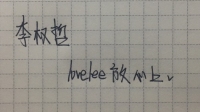 李权哲
lovelee 放心上。